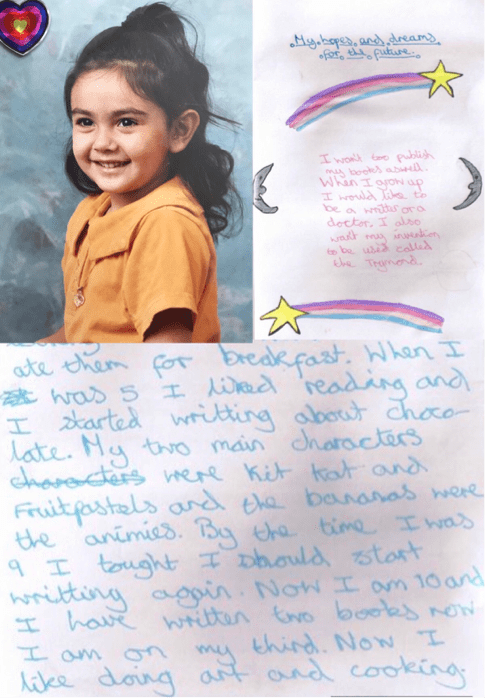 My hopes and dreams
for the future.
I won't too publish
my books aswell.
When I grow up
I would like to
be a writter or a
doctor. I also
want my invention
to be used called
the Trymond.
ate them for breakfast. When I
was 5 I liked reading and
I started writting about choco-
late. My two main characters
characters were Kit Kat and
Fruitpastels and the bananas were
the animies. By the time I was
9 I tought I should start
writting again. Now I am 10 and
I have written two books now
I am on my third. Now I
like doing art and cooking.